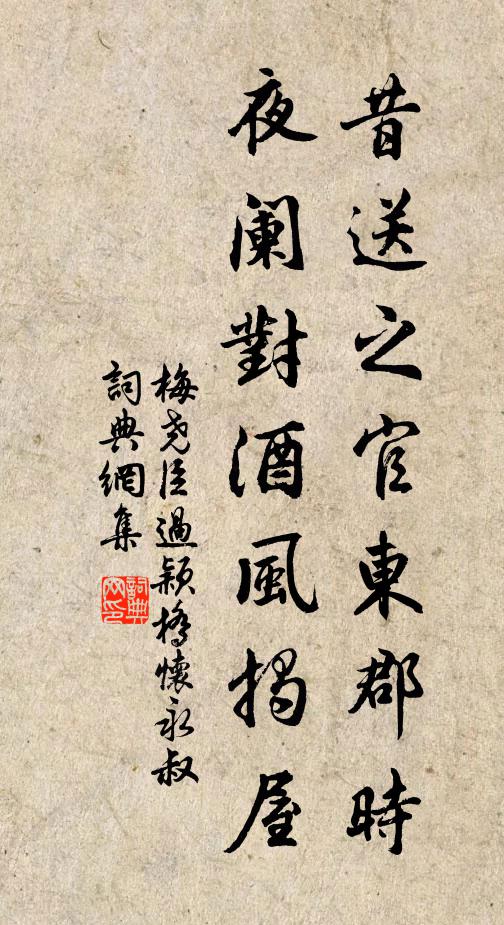 昔送之官東郡時
夜阑對酒風揭屋
梅尧臣過穎橋懷永叔
詞典網集
詞典網印